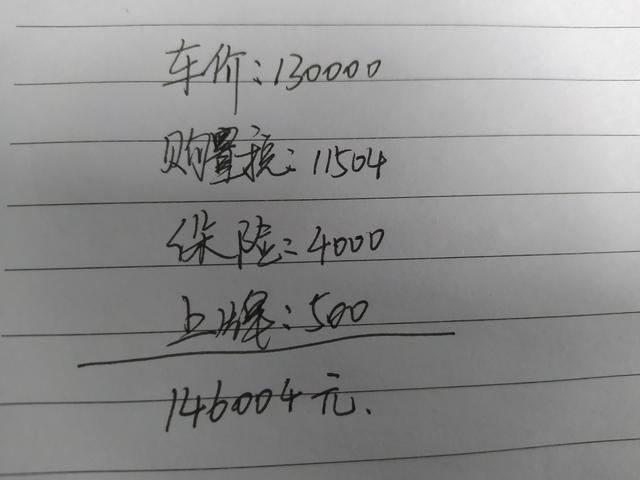 车价:130000
购置税:11504
保险:4000
上牌:500
146004元.